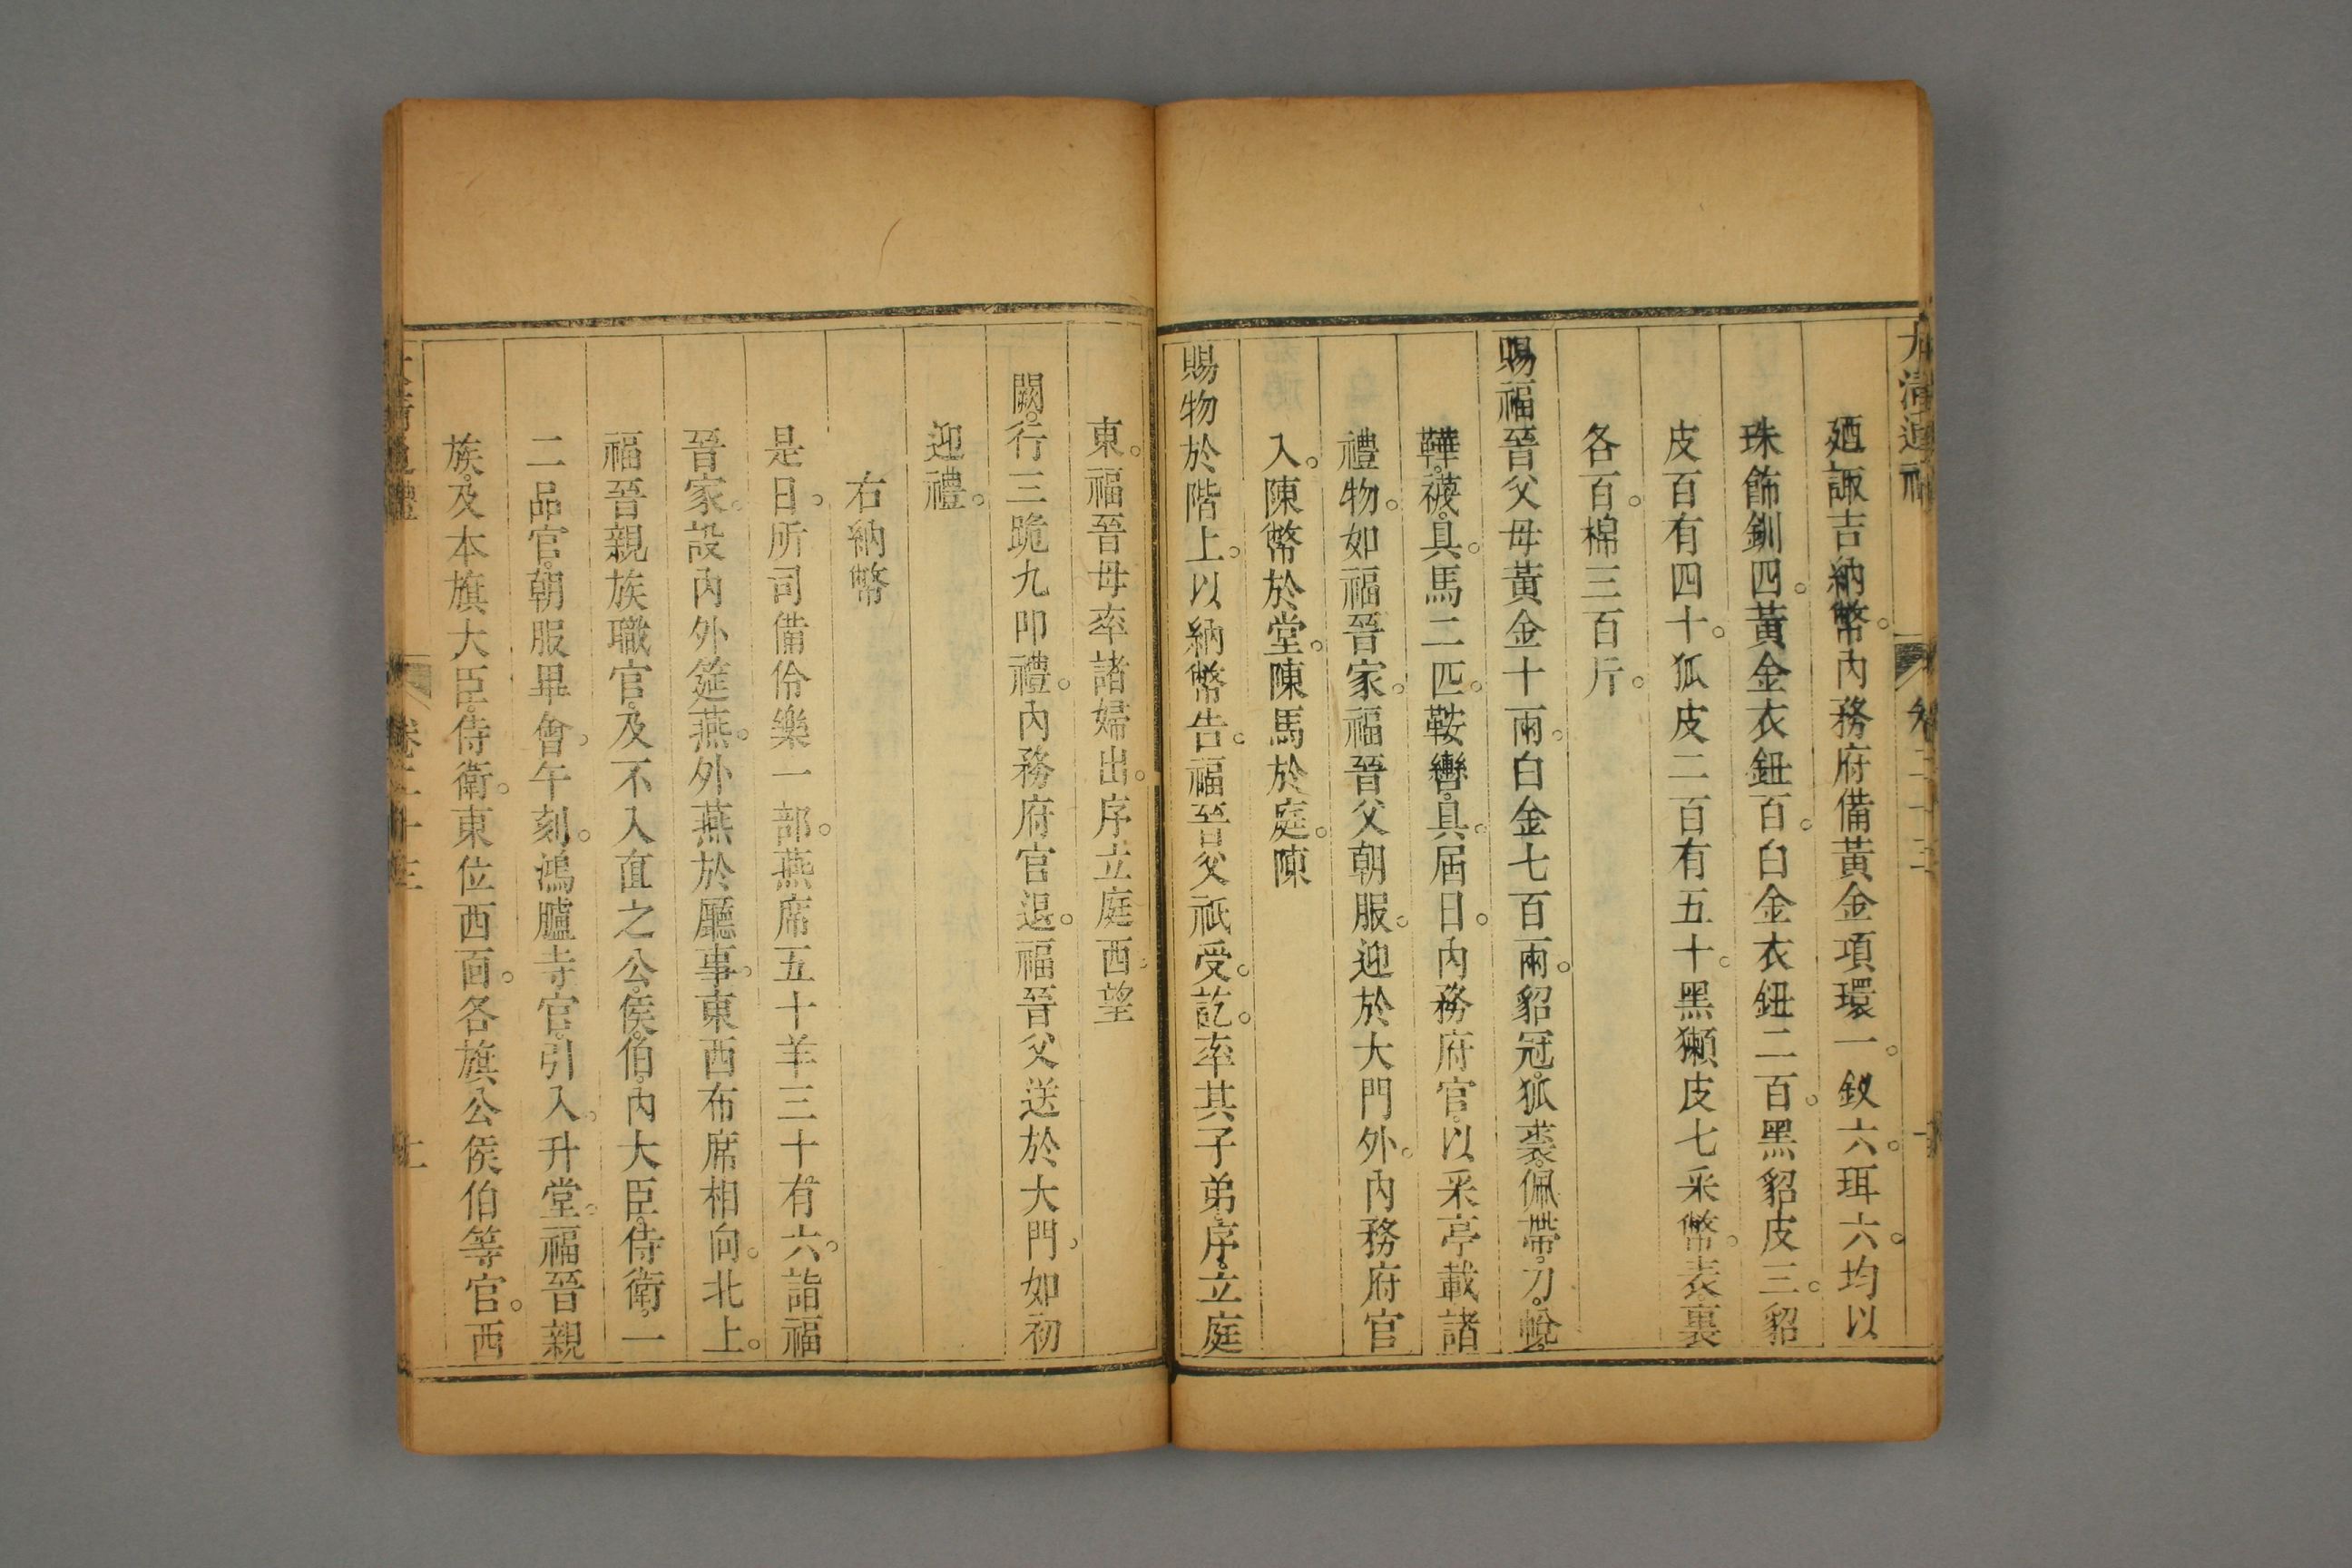 廼諏吉納幣。內務府備黃金項環一。釵六。珥六。均以
珠飾釧四。黃金衣鈕百。白金衣鈕二百。黑貂皮三。貂
皮百有四十。狐皮二百有五十。黑獺皮七。采幣。表裏
各百。棉三百斤。
賜福晉父母黃金十兩。白金七百兩。貂冠。狐裘。佩帶。刀。帨。
鞾。襪。具。馬二匹。鞍轡。具。屆日。內務府官。以采亭載諸
禮物。如福晉家。福晉父朝服。迎於大門外。內務府官
入。陳幣於堂。陳馬於庭。陳
賜物於階上。以納幣告。福晉父祇受。訖。率其子弟。序。立庭
東。福晉母率諸婦出。序立庭西。望
闕。行三跪九叩禮。內務府官退。福晉父送於大門。如初
迎禮。
右納幣
是日。所司備伶樂一部。燕席五十羊三十有六。詣福
晉家。設內外筵燕。外燕於廳事。東西布席相向。北上。
福晉親族職官。及不入直之公。侯。伯。內大臣。侍衛。一
二品官。朝服畢會。午刻。鴻臚寺官。引入。升堂。福晉親
族。及本旗大臣。侍衛。東位西面。各旗公侯伯等官。西
大清通禮
卷二十三